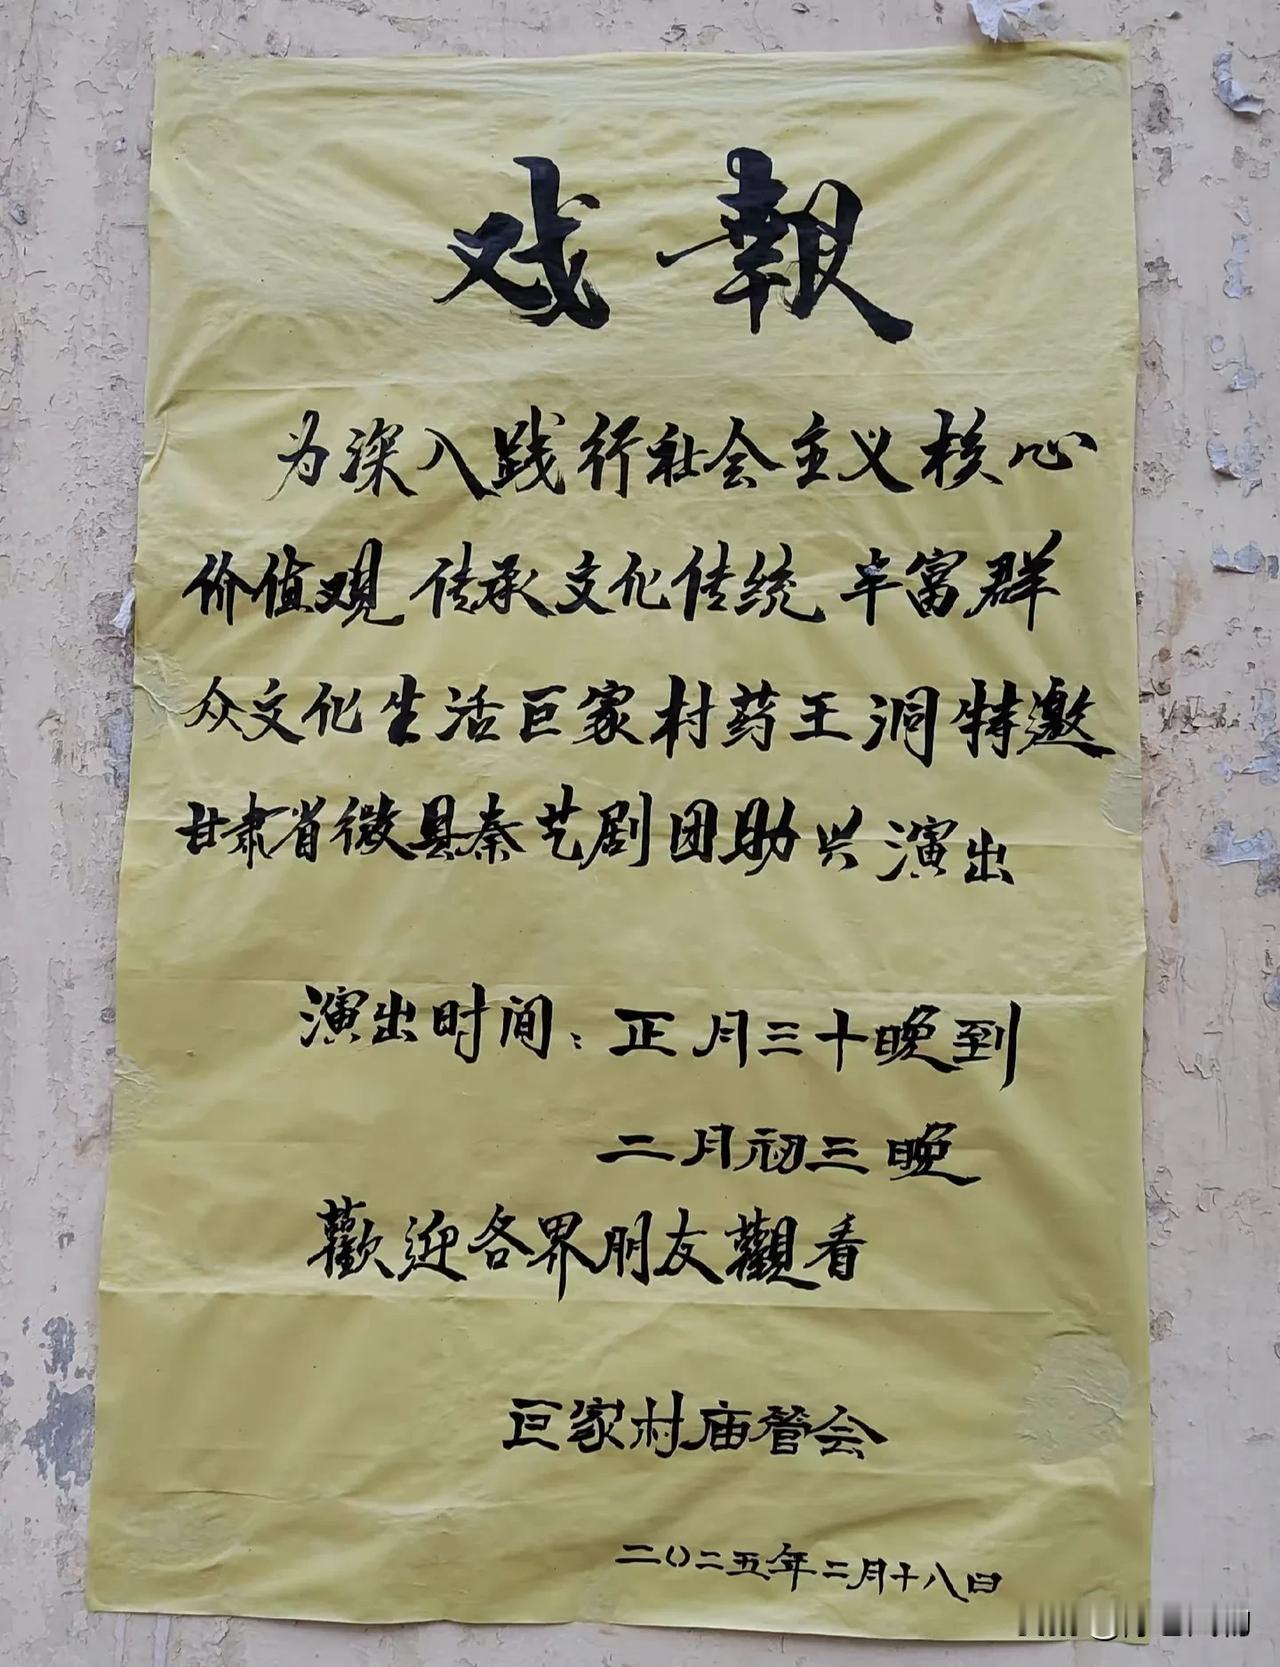 戏報
为深入践行社会主义核心
价值观 传承文化传统 丰富群
众文化生活巨家村药王洞特邀
甘肃省徽县秦艺剧团助兴演出
演出时间：正月三十晚到
二月初三晚
歡迎各界朋友觀看
巨家村庙管会
二〇二五年二月十八日